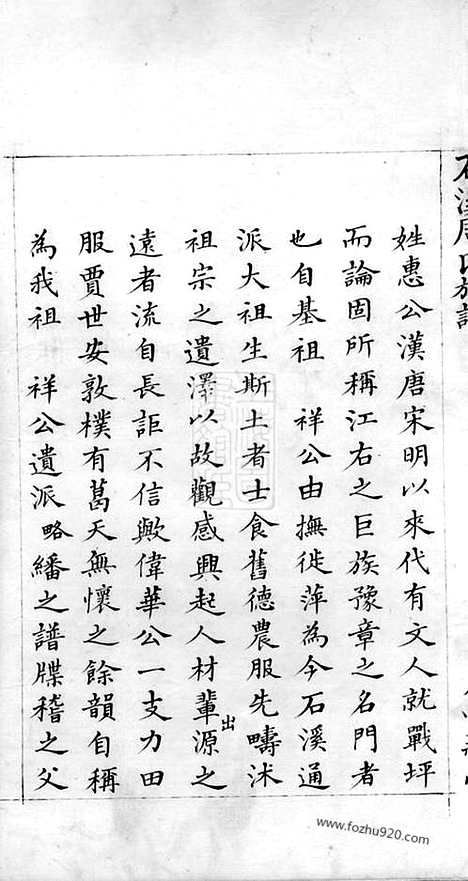 石溪周氏族譜
姓惠公漢唐宋明以來代有文人就戰坪
而論固所稱江右之巨族豫章之名門者
也自基祖　祥公由撫徙萍為今石溪通
派大祖生斯土者士食舊德農服先疇沐
祖宗之遺澤以故觀感興起人材輩出源之
遠者流自長詎不信歟偉華公一支力田
服賈世安敦樸有葛天無懷之餘韻自稱
為我祖　祥公遺派略繙之譜牒稽之父
www.fozhu920.com